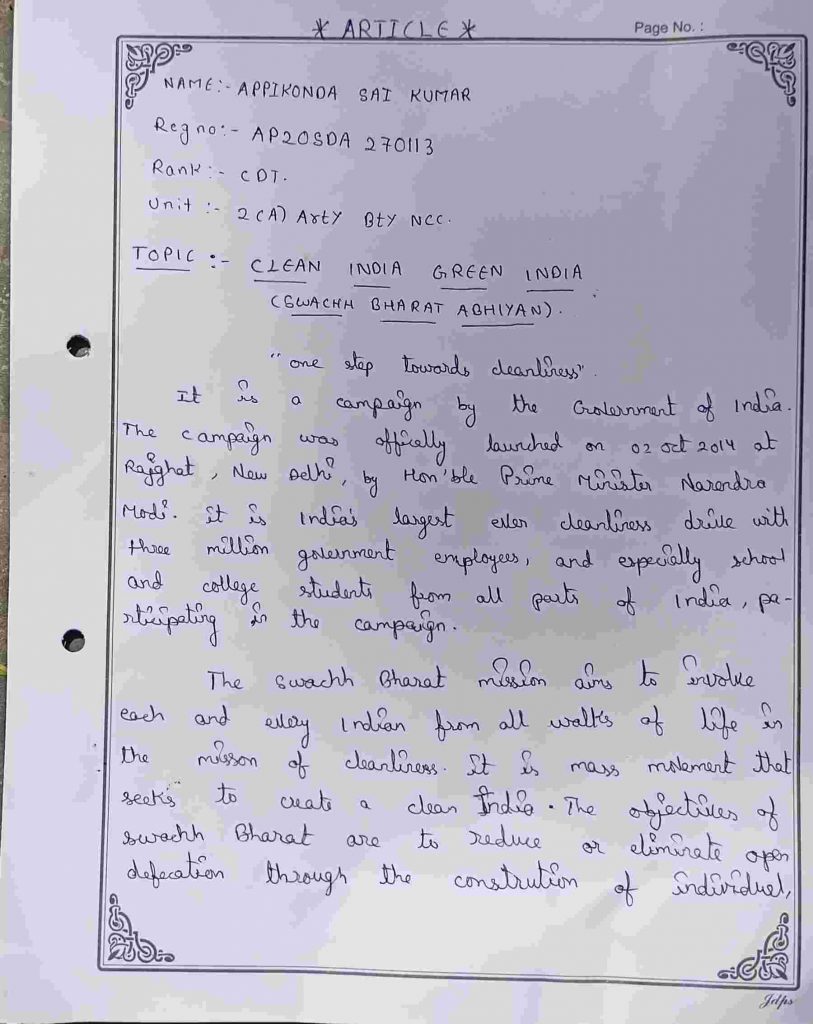 * ARTICLE *
Page No. :
NAME:- APPIKONDA SAI KUMAR
Reg no:- AP20SDA 270113
Rank:- CDT.
Unit :- 2(A) Arty Bty NCC.
TOPIC :- CLEAN INDIA GREEN INDIA
(SWACHH BHARAT ABHIYAN).
"one step towards cleanliness".
It is a campaign by the Government of India.
The campaign was offcially launched on 02 oct 2014 at
Rajghat, New Delhi, by Hon'ble Prime Minister Narendra
Modi. it is India's largest ever cleanliness drive with
three million government employees, and especially school
and college students from all parts of India, pa-
rticipating in the campaign.
The swachh Bharat mission aims to involve
each and every Indian from all walks of life in
the misson of cleanliness. It is mass movement that
seeks to create a clean India. The objectives of
swachh Bharat are to reduce or eliminate open
defecation through the constrution of individuel,
Jdps